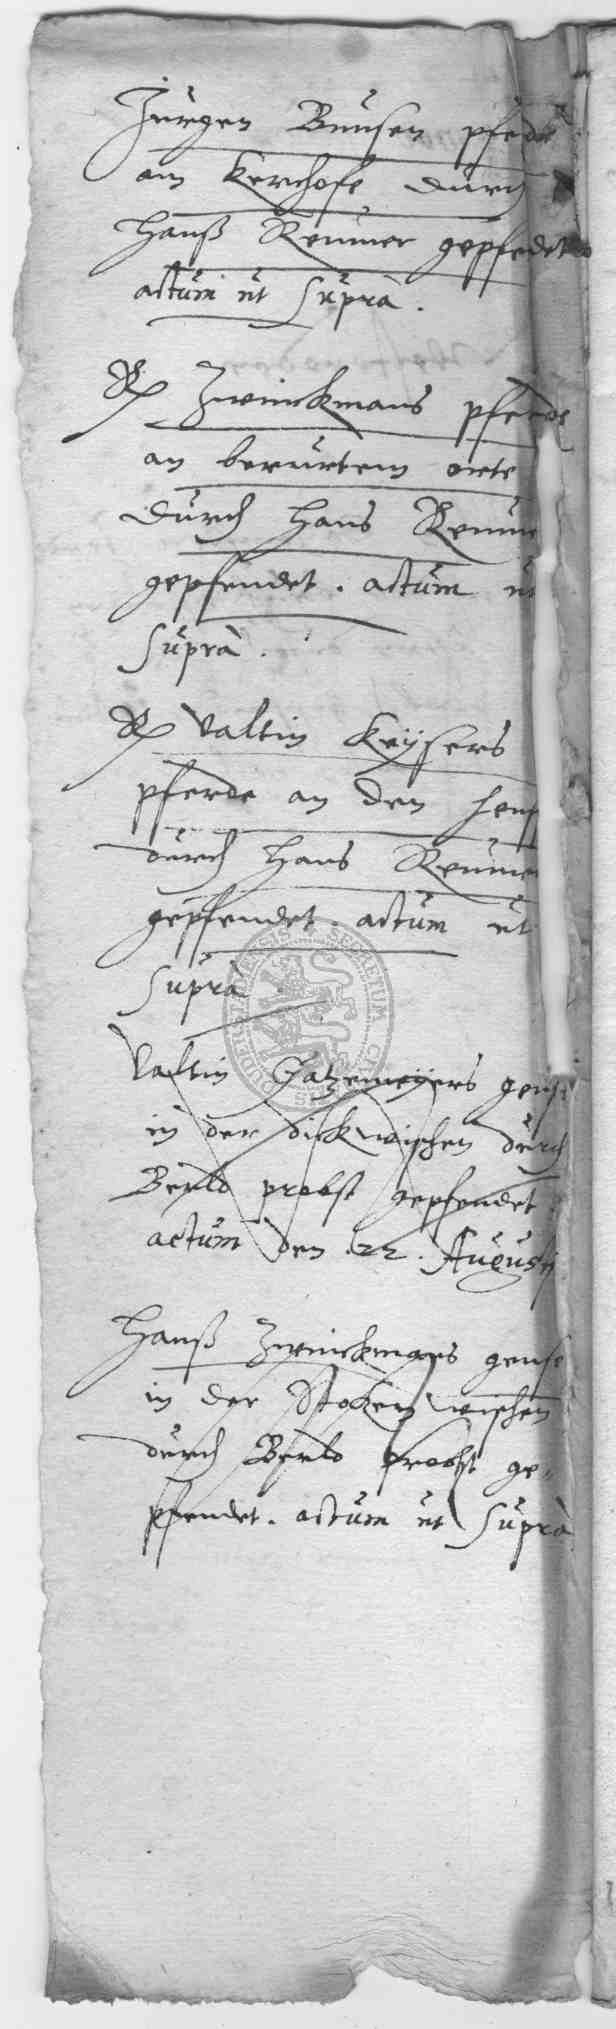 Jurgen Bunsen pferde
am Kerchofe durch
Hanß Remmer gepfedet
actum ut Supra.
Zwinckmans pferde
an berurtem orte
durch Hans Remme
gepfendet. actum ut
Supra.
Valtin Keysers
pferde an den
durch Hans Remmer
gepfendet. actum ut
Supra
Valtin Gatzemeyers gense
in der dickwischen durch
Berld probst gepfendet
actum den .22. Augusti
Hanß Zwinckmans gense
in der Stoken wischen
durch Berld Probst ge-
pfendet. actum ut Supra